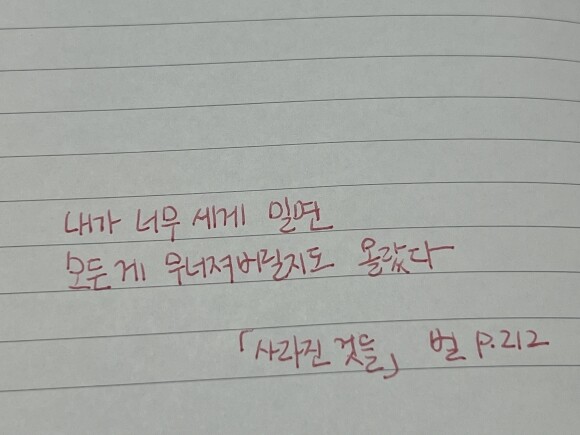 내가 너무 세게 밀면
모든게 무너져버릴지도 몰랐다
「사라진 것들」 벌 p.212